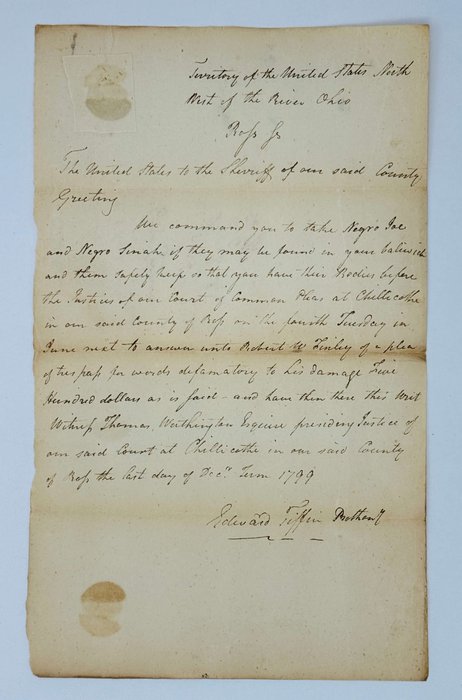 Territory of the United States North
West of the River Ohio
Ross Ss
The United States to the Sherriff of our said County
Greeting
We command you to take Negro Joe
and Negro Sinah if they may be found in your bailiwick
and them safely keep so that you have their Bodies before
the Justices of our Court of Common Pleas at Chillicothe
in our said County of Ross on the fourth Tuesday in
June next to answer unto Robert W Finley of a plea
of trespass for words defamatory to his damage Five
Hundred dollars as is said - and have then there this Writ
Witness Thomas Worthington Esquire presiding Justice of
our said Court at Chillicothe in our said County
of Ross the last day of Decr. Term 1799
Edward Tiffin